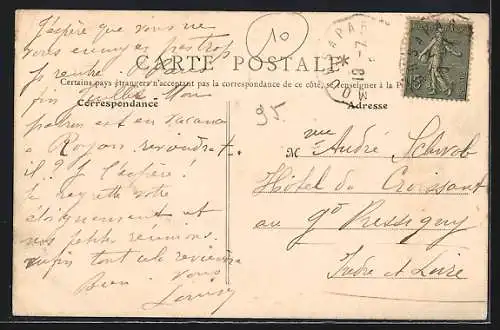 J'espère que vous ne
vous ennuyez pas trop
Je rentre à Paris
fin Juillet. Mon
patron est en vacances
à Royan. reviendra t.
il ? J'espère !
Je regrette votre
éloignement et
nos petites réunions
enfin tout cela reviendra
Bien Vous
Louise
10
CARTE POSTALE
Certains pays étrangers n'acceptent pas la correspondance de ce côté, se renseigner à la P
Correspondance
95
PARIS
15
Adresse
M me André Schwob
Hôtel du Croissant
au Gd Pressigny
Indre et Loire